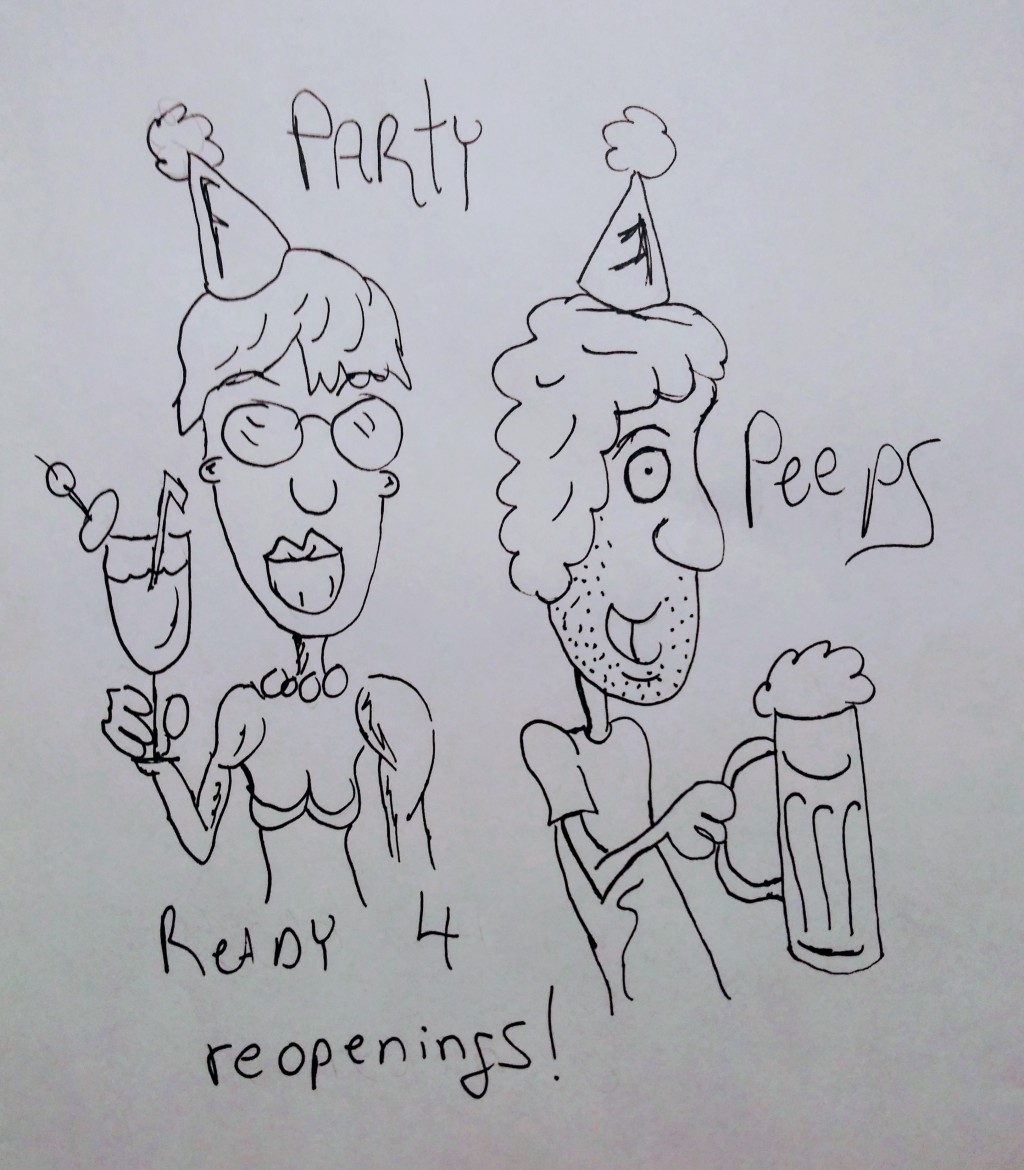 PARty
Peeps
ReADY 4
reopenings!